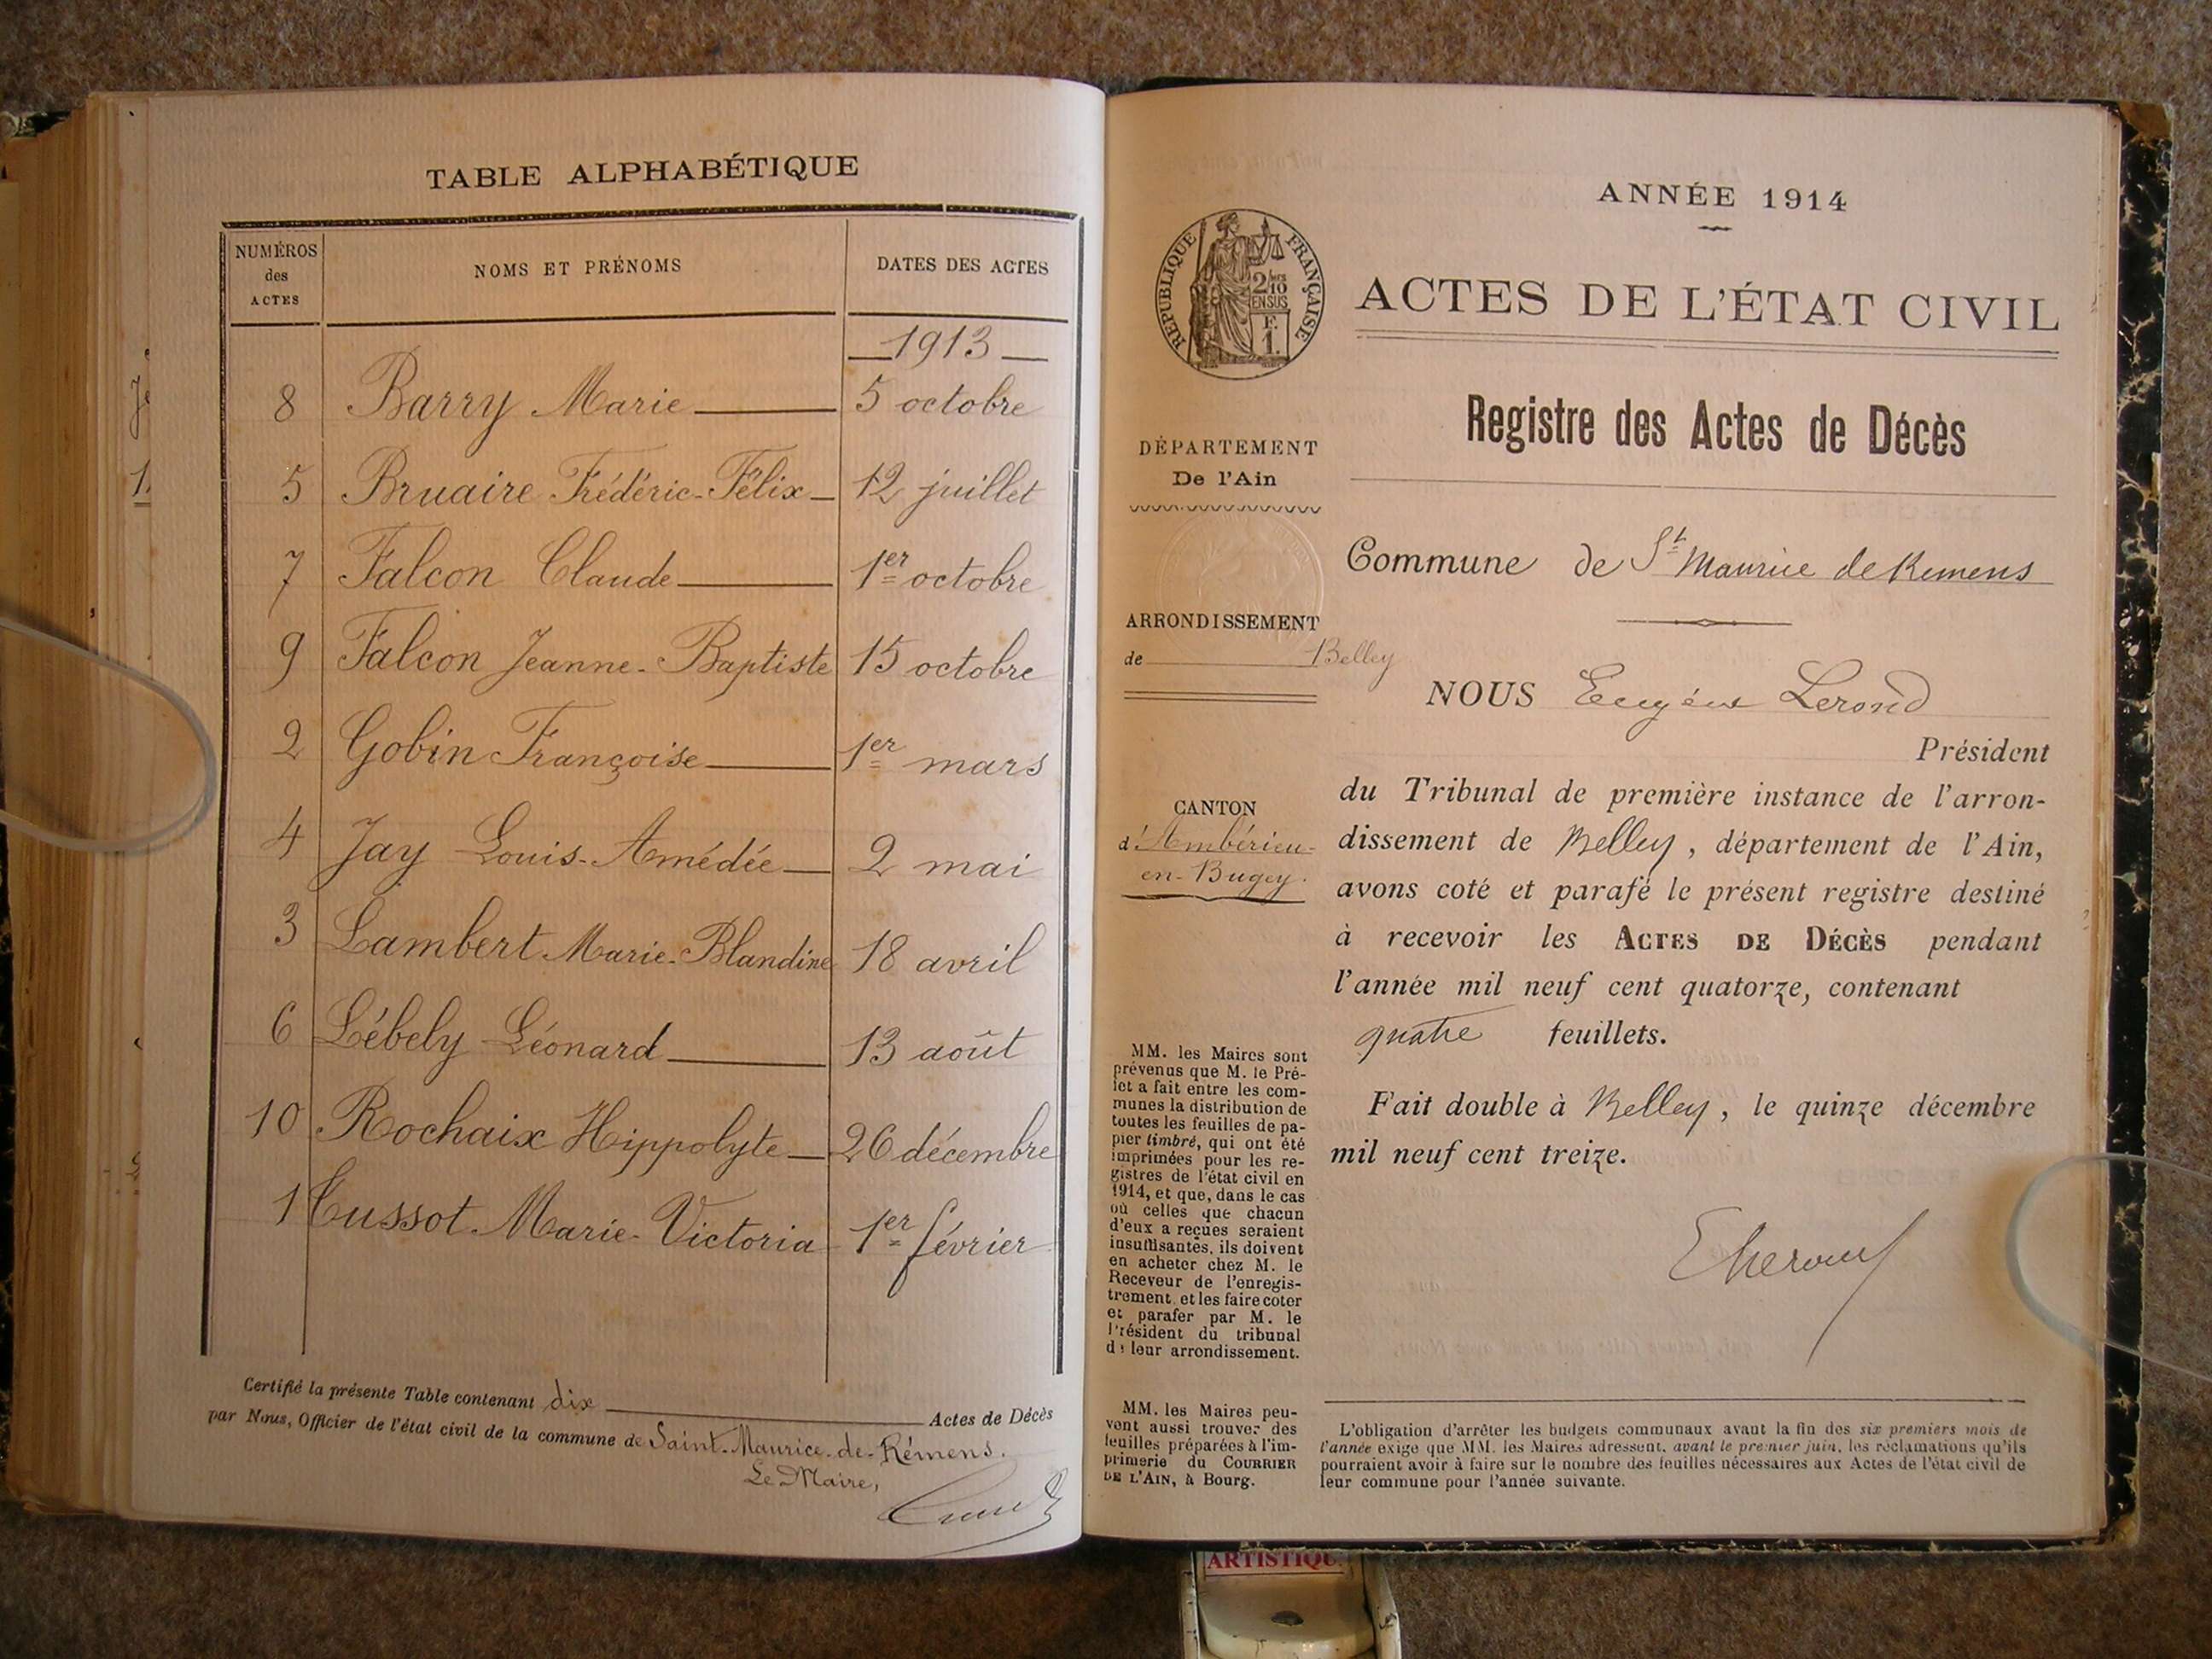 TABLE ALPHABÉTIQUE
NUMÉROS
des
ACTES
NOMS ET PRÉNOMS
DATES DES ACTES
1913
8 Barry Marie 5 octobre
5 Bruaire Frédéric-Félix 12 juillet
7 Falcon Claude 1er octobre
9 Falcon Jeanne-Baptiste 15 octobre
2 Gobin Françoise 1er mars
4 Jay Louis-Amédée 2 mai
3 Lambert Marie-Blandine 18 avril
6 Lébely Léonard 13 août
10 Rochaix Hippolyte 26 décembre
1 Cussot Marie-Victoria 1er février
Certifié la présente Table contenant dix Actes de Décès
par Nous, Officier de l'état civil de la commune de Saint-Maurice-de-Rémens.
Le Maire,
ANNÉE 1914
RÉPUBLIQUE FRANÇAISE
2/10
EN SUS
F.
1.
ACTES DE L'ÉTAT CIVIL
Registre des Actes de Décès
DÉPARTEMENT
De l'Ain
Commune de St Maurice de Remens
ARRONDISSEMENT
de Belley
NOUS Eugène Lerond
Président
du Tribunal de première instance de l'arron-
dissement de Belley, département de l'Ain,
avons coté et parafé le présent registre destiné
à recevoir les ACTES DE DÉCÈS pendant
l'année mil neuf cent quatorze, contenant
quatre feuillets.
Fait double à Belley, le quinze décembre
mil neuf cent treize.
CANTON
d'Ambérieu-
en-Bugey.
MM. les Maires sont
prévenus que M. le Pré-
fet a fait entre les com-
munes la distribution de
toutes les feuilles de pa-
pier timbré, qui ont été
imprimées pour les re-
gistres de l'état civil en
1914, et que, dans le cas
où celles que chacun
d'eux a reçues seraient
insuffisantes, ils doivent
en acheter chez M. le
Receveur de l'enregis-
trement, et les faire coter
et parafer par M. le
Président du tribunal
de leur arrondissement.
MM. les Maires peu-
vent aussi trouver des
feuilles préparées à l'im-
primerie du COURRIER
DE L'AIN, à Bourg.
L'obligation d'arrêter les budgets communaux avant la fin des six premiers mois de
l'année exige que MM. les Maires adressent, avant le premier juin, les réclamations qu'ils
pourraient avoir à faire sur le nombre des feuilles nécessaires aux Actes de l'état civil de
leur commune pour l'année suivante.
ARTISTIQU